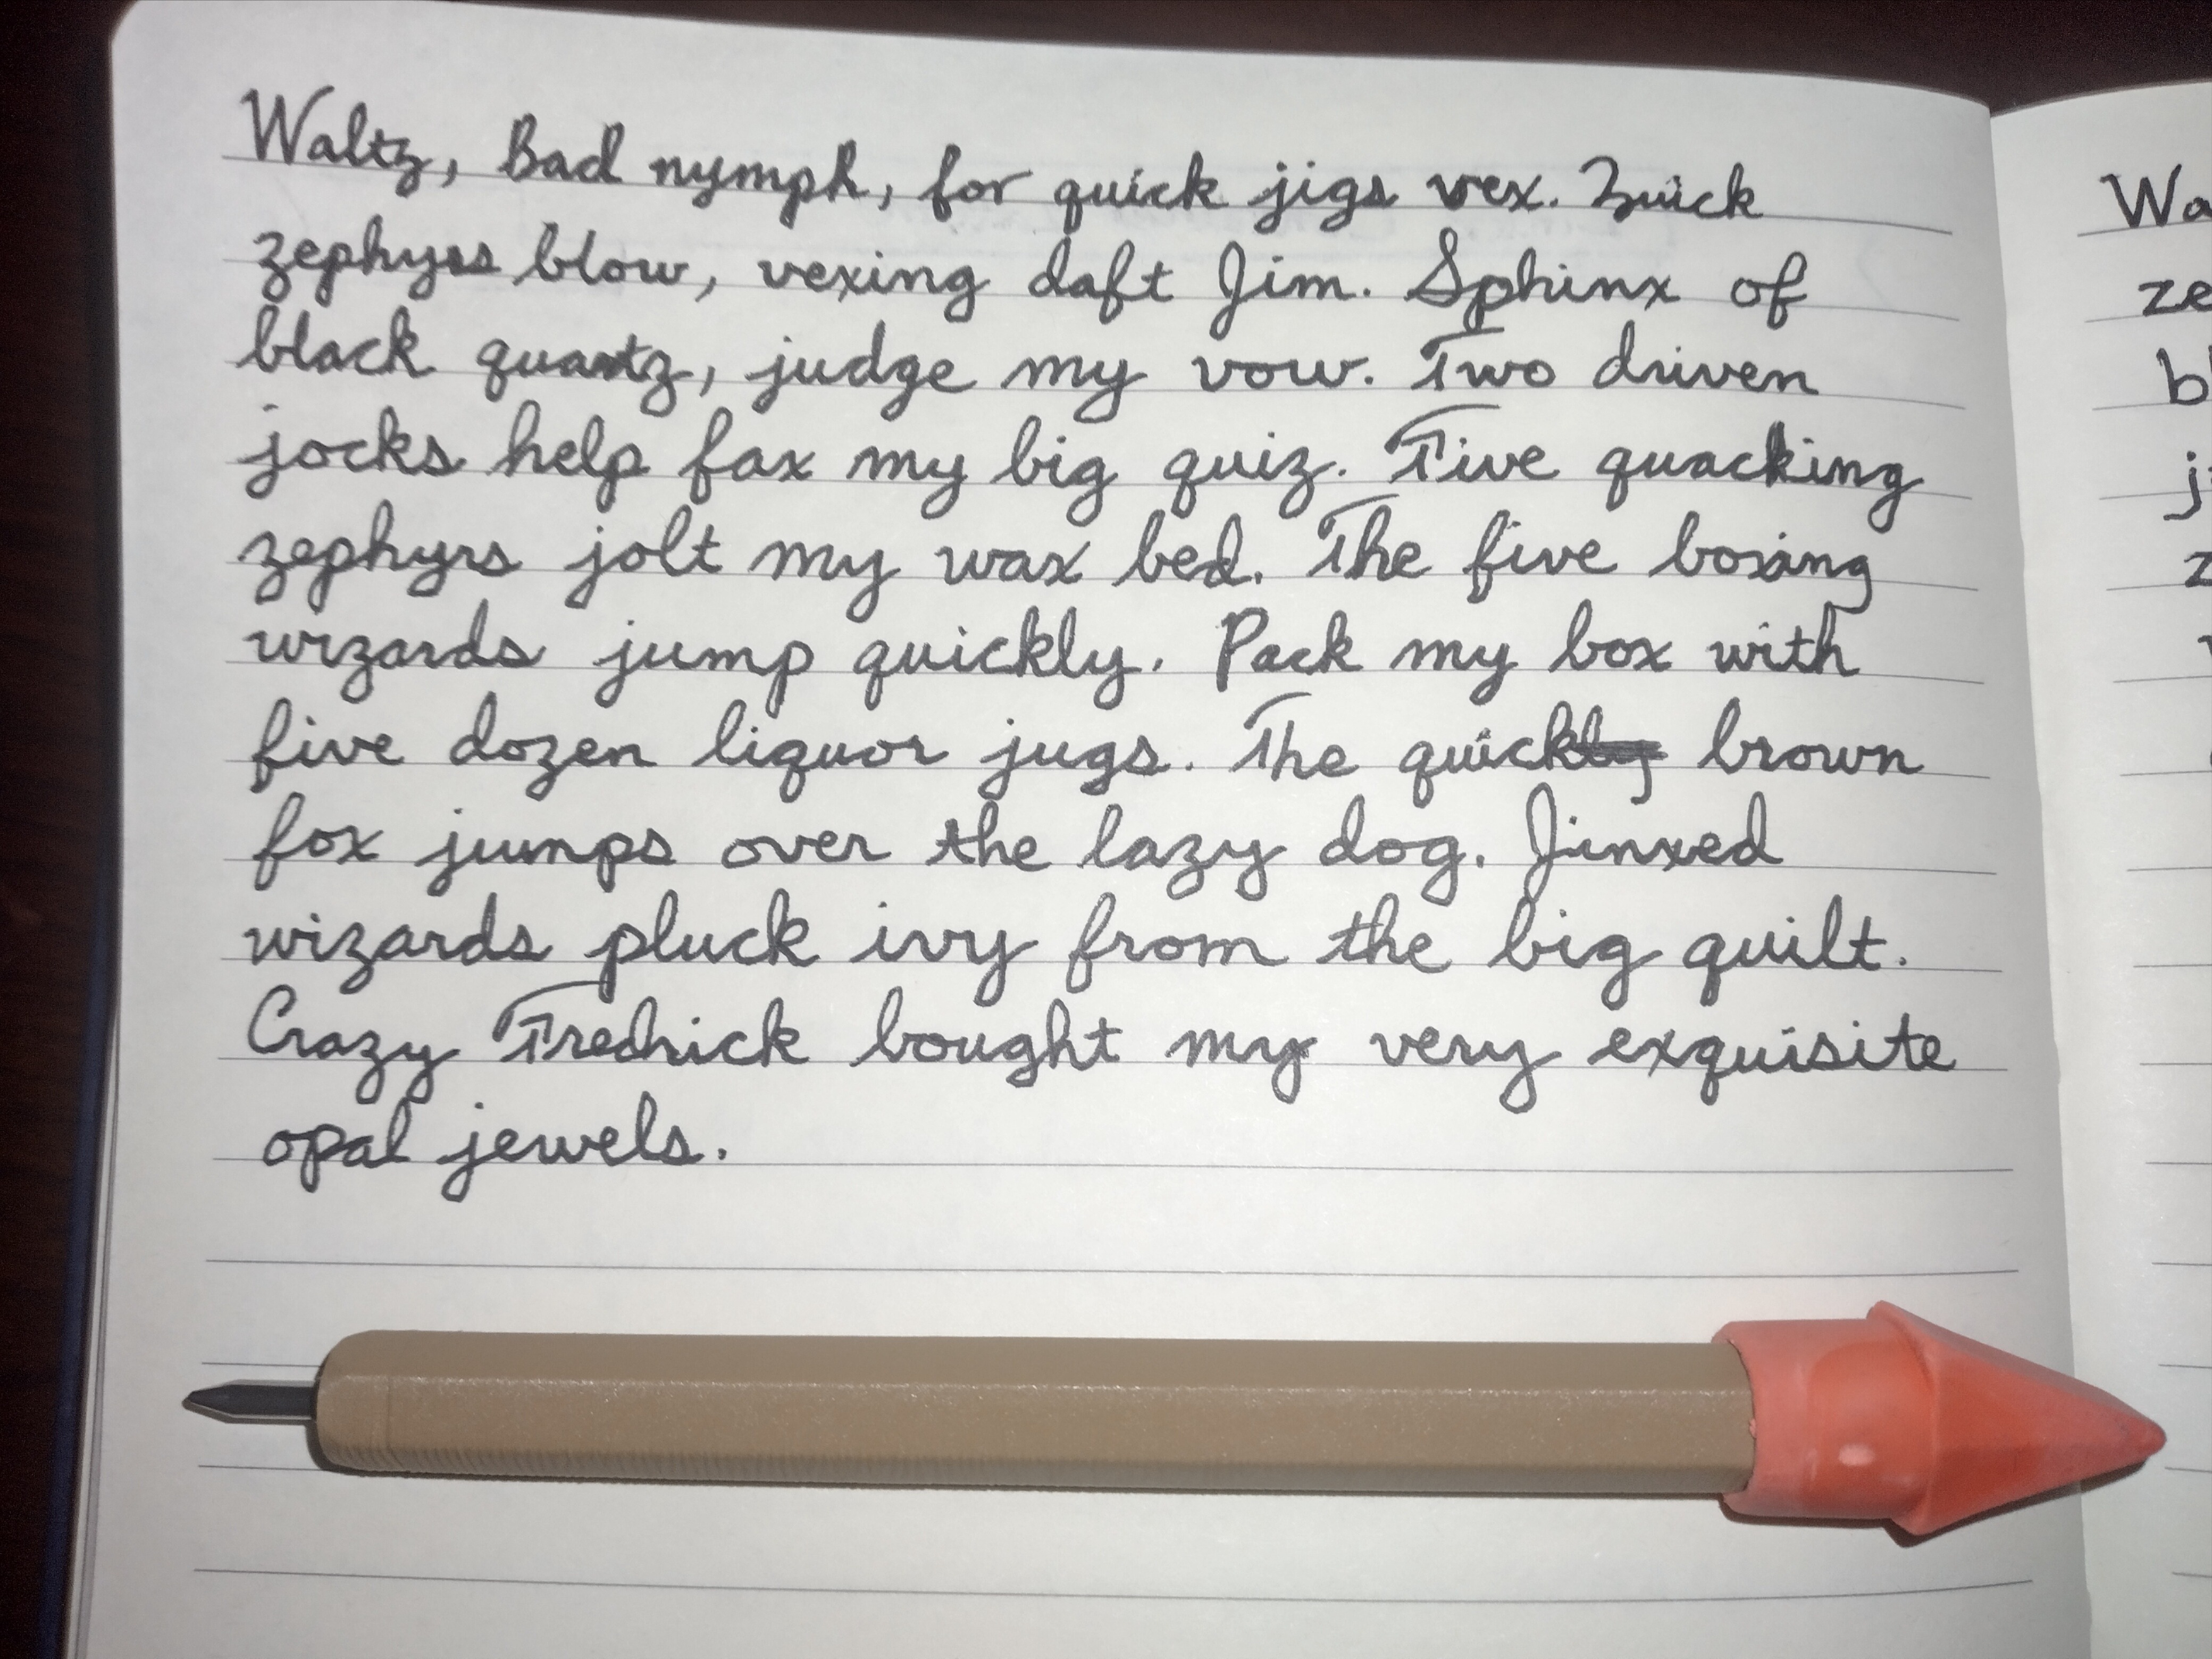 Waltz, Bad nymph, for quick jigs vex. Quick
zephyrs blow, vexing daft Jim. Sphinx of
black quartz, judge my vow. Two driven
jocks help fax my big quiz. Five quacking
zephyrs jolt my wax bed. The five boxing
wizards jump quickly. Pack my box with
five dozen liquor jugs. The quick brown
fox jumps over the lazy dog. Jinxed
wizards pluck ivy from the big quilt.
Crazy Fredrick bought my very exquisite
opal jewels.